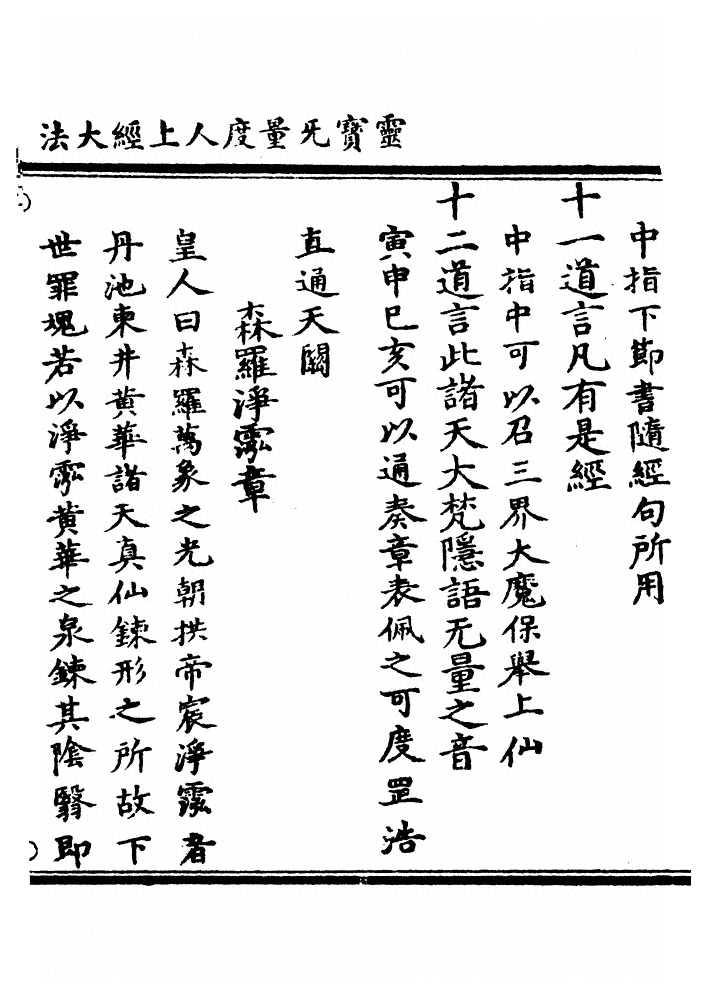 靈寶旡量度人上經大法
中指下節書隨經句所用
十一道言凡有是經
中指中可以召三界大魔保舉上仙
十二道言此諸天大梵隱語旡量之音
寅申巳亥可以通奏章表佩之可度罡浩
直通天闕
森羅淨霐章
皇人曰森羅萬象之光朝拱帝宸淨霐者
丹池東井黃華諸天真仙鍊形之所故下
世罪魂若以淨霐黃華之泉鍊其陰翳即